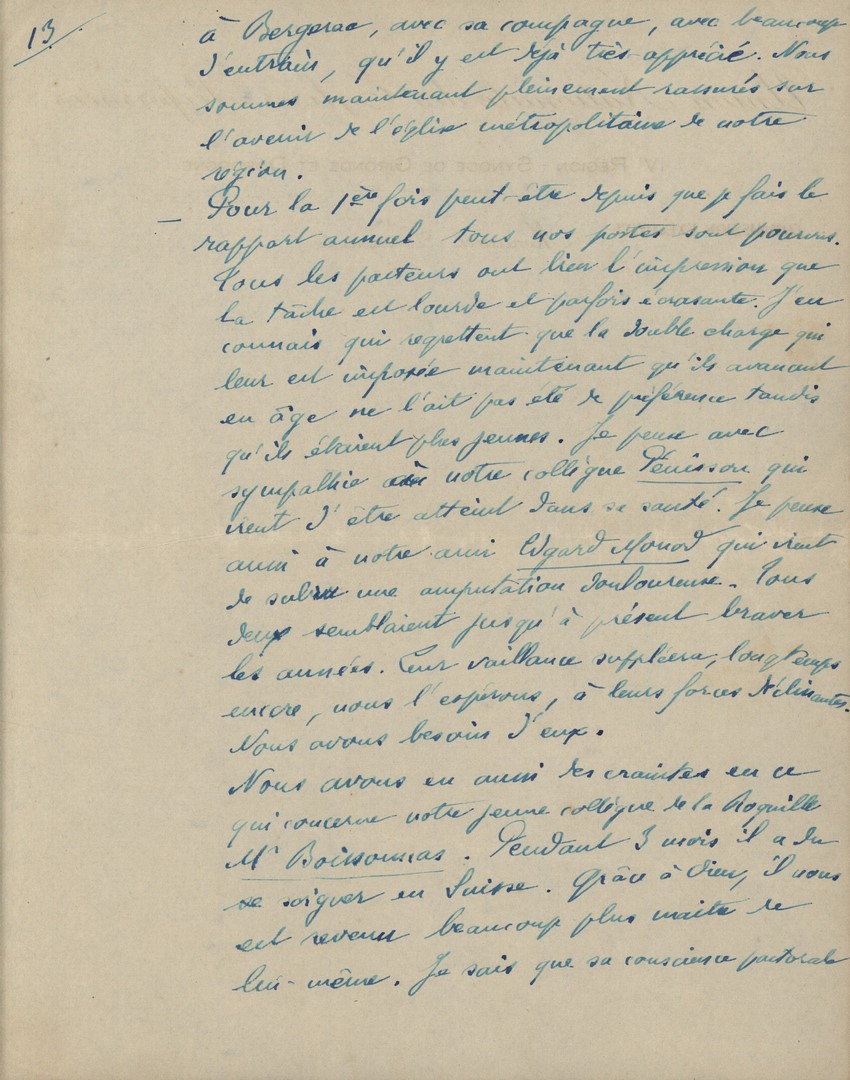 13
à Bergerac, avec sa compagne, avec beaucoup
d'entrain, qu'il y est déjà très apprécié. Nous
sommes maintenant pleinement rassurés sur
l'avenir de l'église métropolitaine de notre
région.
— Pour la 1ère fois peut-être depuis que je fais le
rapport annuel tous nos postes sont pourvus.
Tous les pasteurs ont bien l'impression que
la tâche est lourde et parfois écrasante. J'en
connais qui regrettent que la double charge qui
leur est imposée maintenant qu'ils avancent
en âge ne l'ait pas été de préférence tandis
qu'ils étaient plus jeunes. Je pense avec
sympathie à notre collègue Pénisson qui
vient d'être atteint dans sa santé. Je pense
aussi à notre ami Edgard Monod qui vient
de subir une amputation douloureuse. Tous
deux semblaient jusqu'à présent braver
les années. Leur vaillance suppléera, longtemps
encore, nous l'espérons, à leurs forces déclinantes.
Nous avons besoin d'eux.
Nous avons eu aussi des craintes en ce
qui concerne notre jeune collègue de la Roquille
Mr Boissonnas. Pendant 3 mois il a du
se soigner en Suisse. Grâce à Dieu, il nous
est revenu beaucoup plus maître de
lui-même. Je sais que sa conscience pastorale
V RÉGION - SYNODE DE GIRONDE ET DORDOGNE